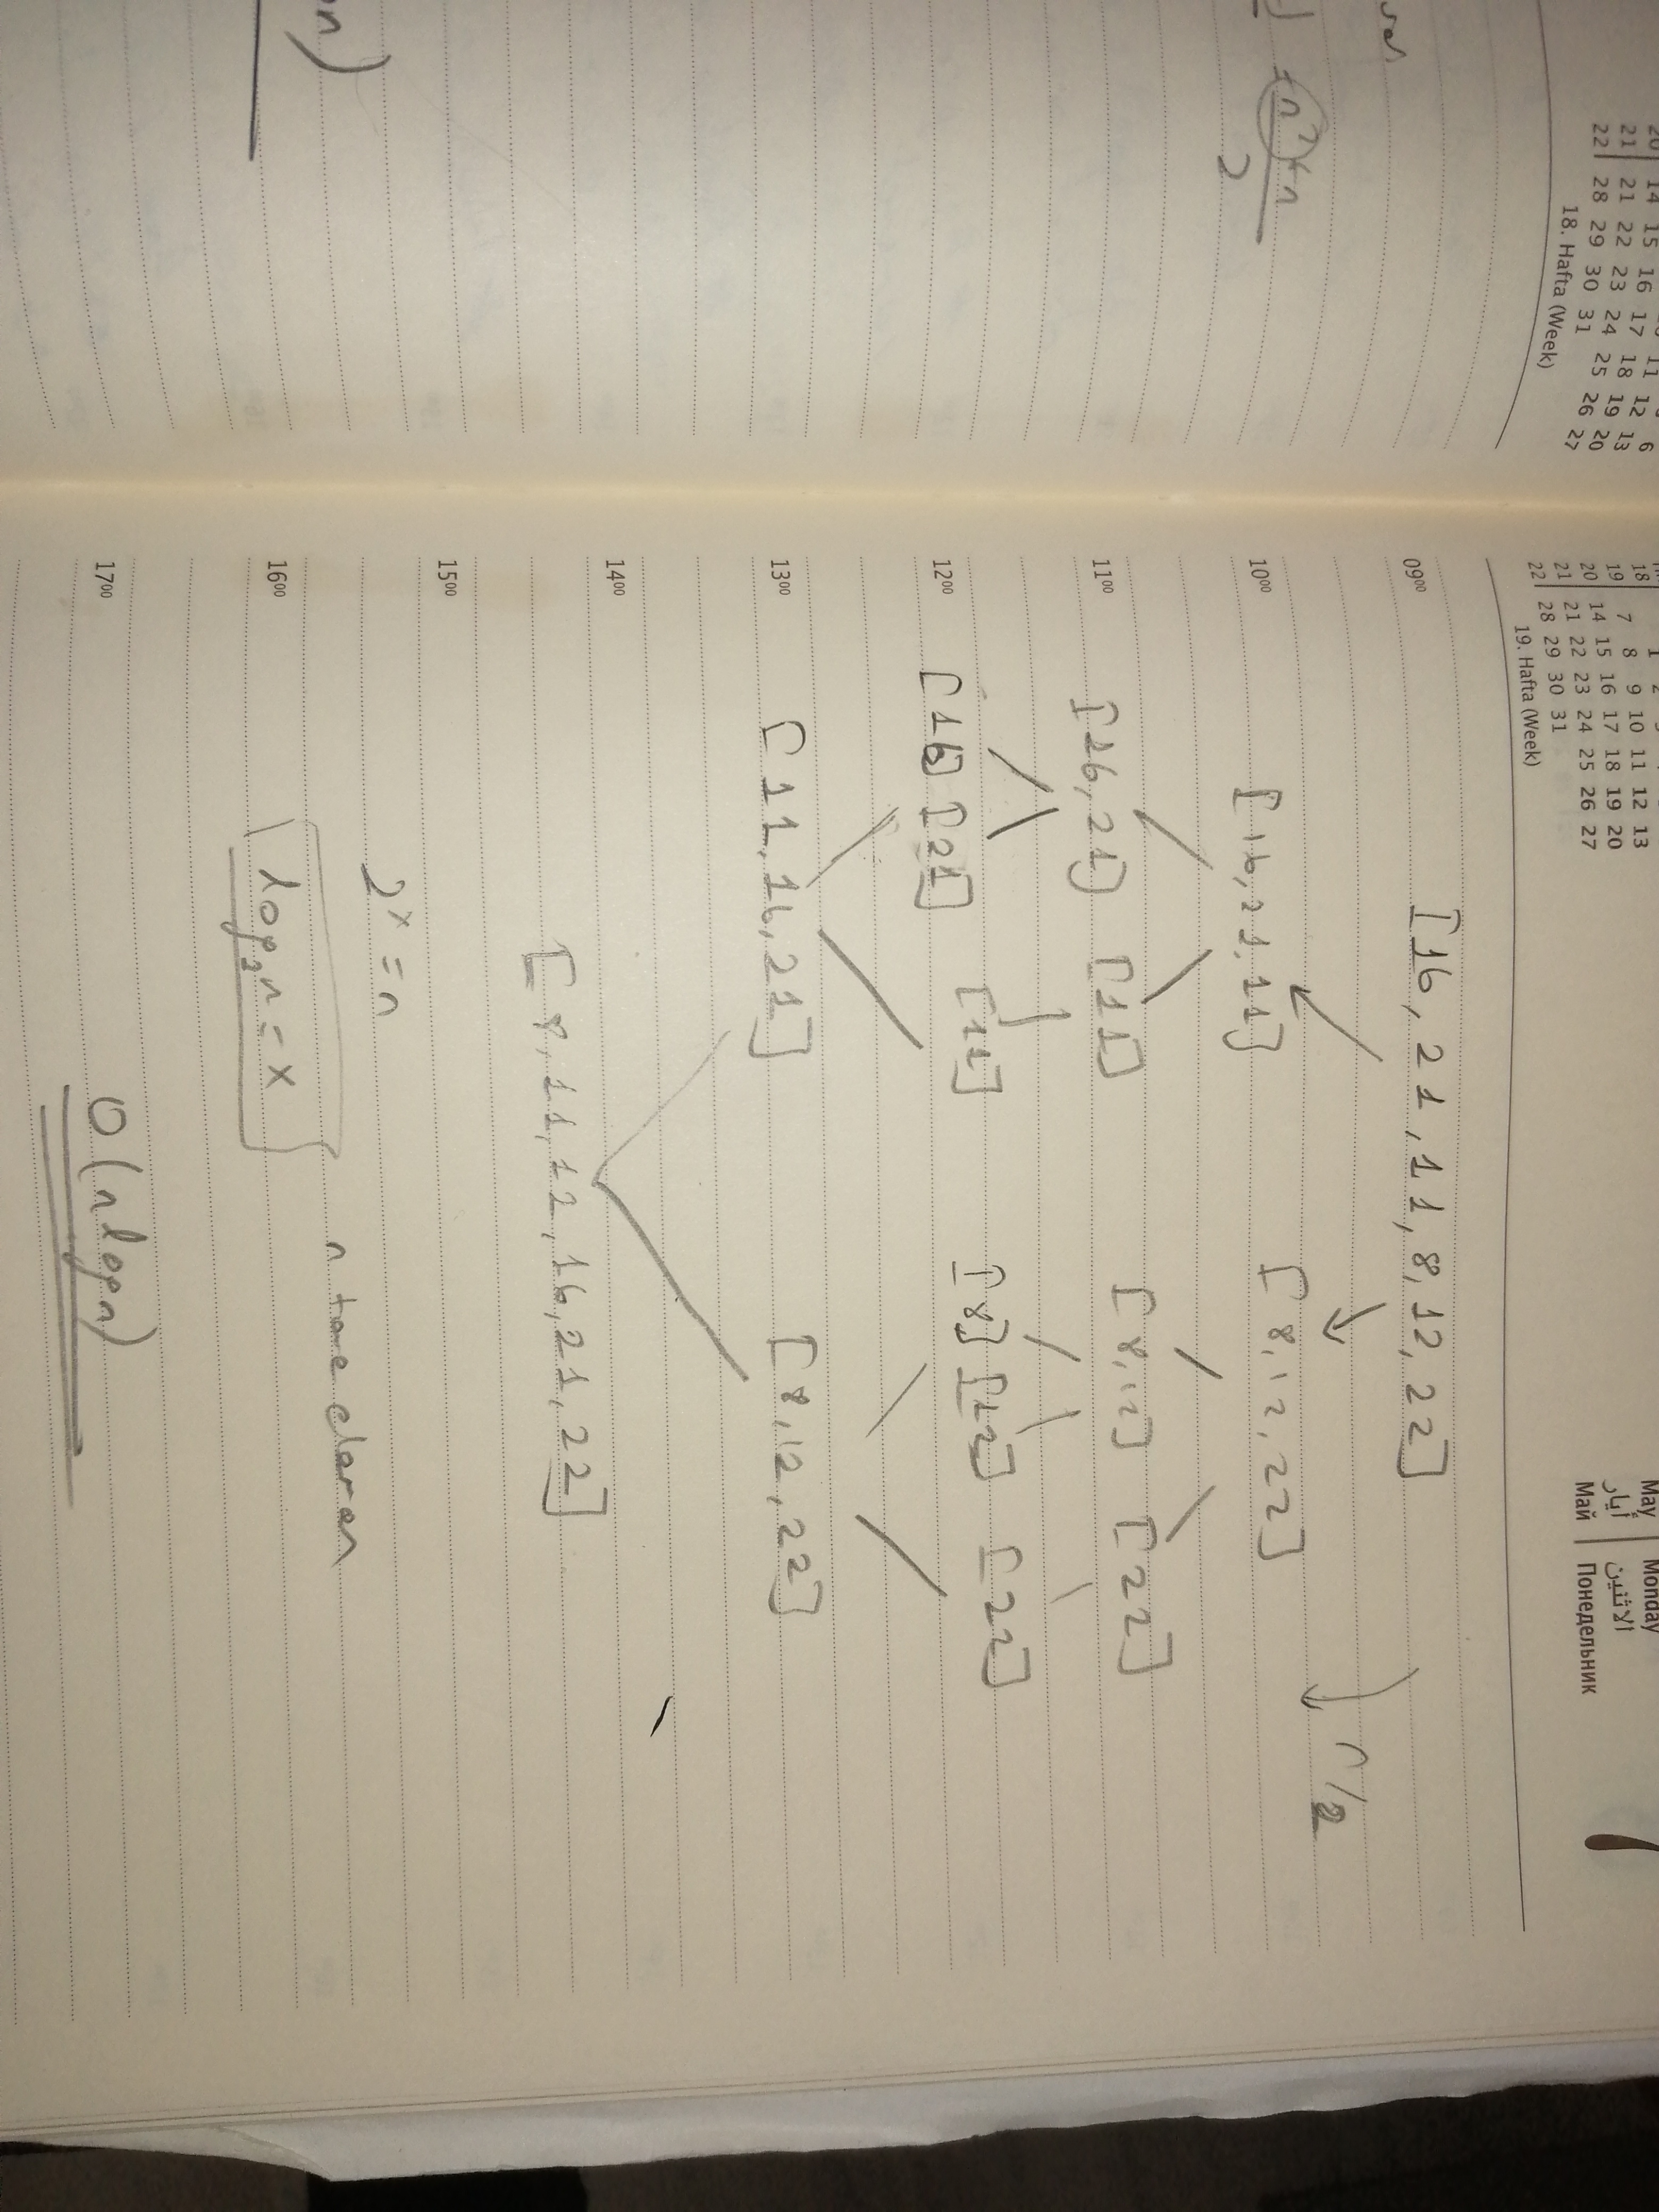 20 14 15 16 17 18 19 20
21 21 22 23 24 25 26 27
22 28 29 30 31
18. Hafta (Week)
-n² + n
2
n)
18 1 2
19 7 8 9 10 11 12 13
20 14 15 16 17 18 19 20
21 21 22 23 24 25 26 27
22 28 29 30 31
19. Hafta (Week)
May Monday
أيار الاثنين
Май Понедельник
7
09⁰⁰ [16, 21, 11, 8, 12, 22]
n/2
10⁰⁰ [16, 21, 11] [8, 12, 22]
11⁰⁰ [16, 21] [11] [8, 12] [22]
12⁰⁰ [16] [21] [11] [8] [12] [22]
13⁰⁰ [11, 16, 21] [8, 12, 22]
14⁰⁰
[8, 11, 12, 16, 21, 22]
15⁰⁰
2ˣ = n
n tane eleman
16⁰⁰ log₂n = x
17⁰⁰ O(nlogn)